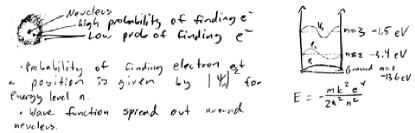 Neucleus
High probability of finding e⁻
Low prob of finding e⁻
• Probability of finding electron at
a position is given by |Ψₙ|² for
energy level n.
• Wave function spread out around
neucleus.
n=3 -1.5 eV
n=2 -3.4 eV
Ground n=1
-13.6 eV
E = - mk²e⁴ / 2ħ²n²